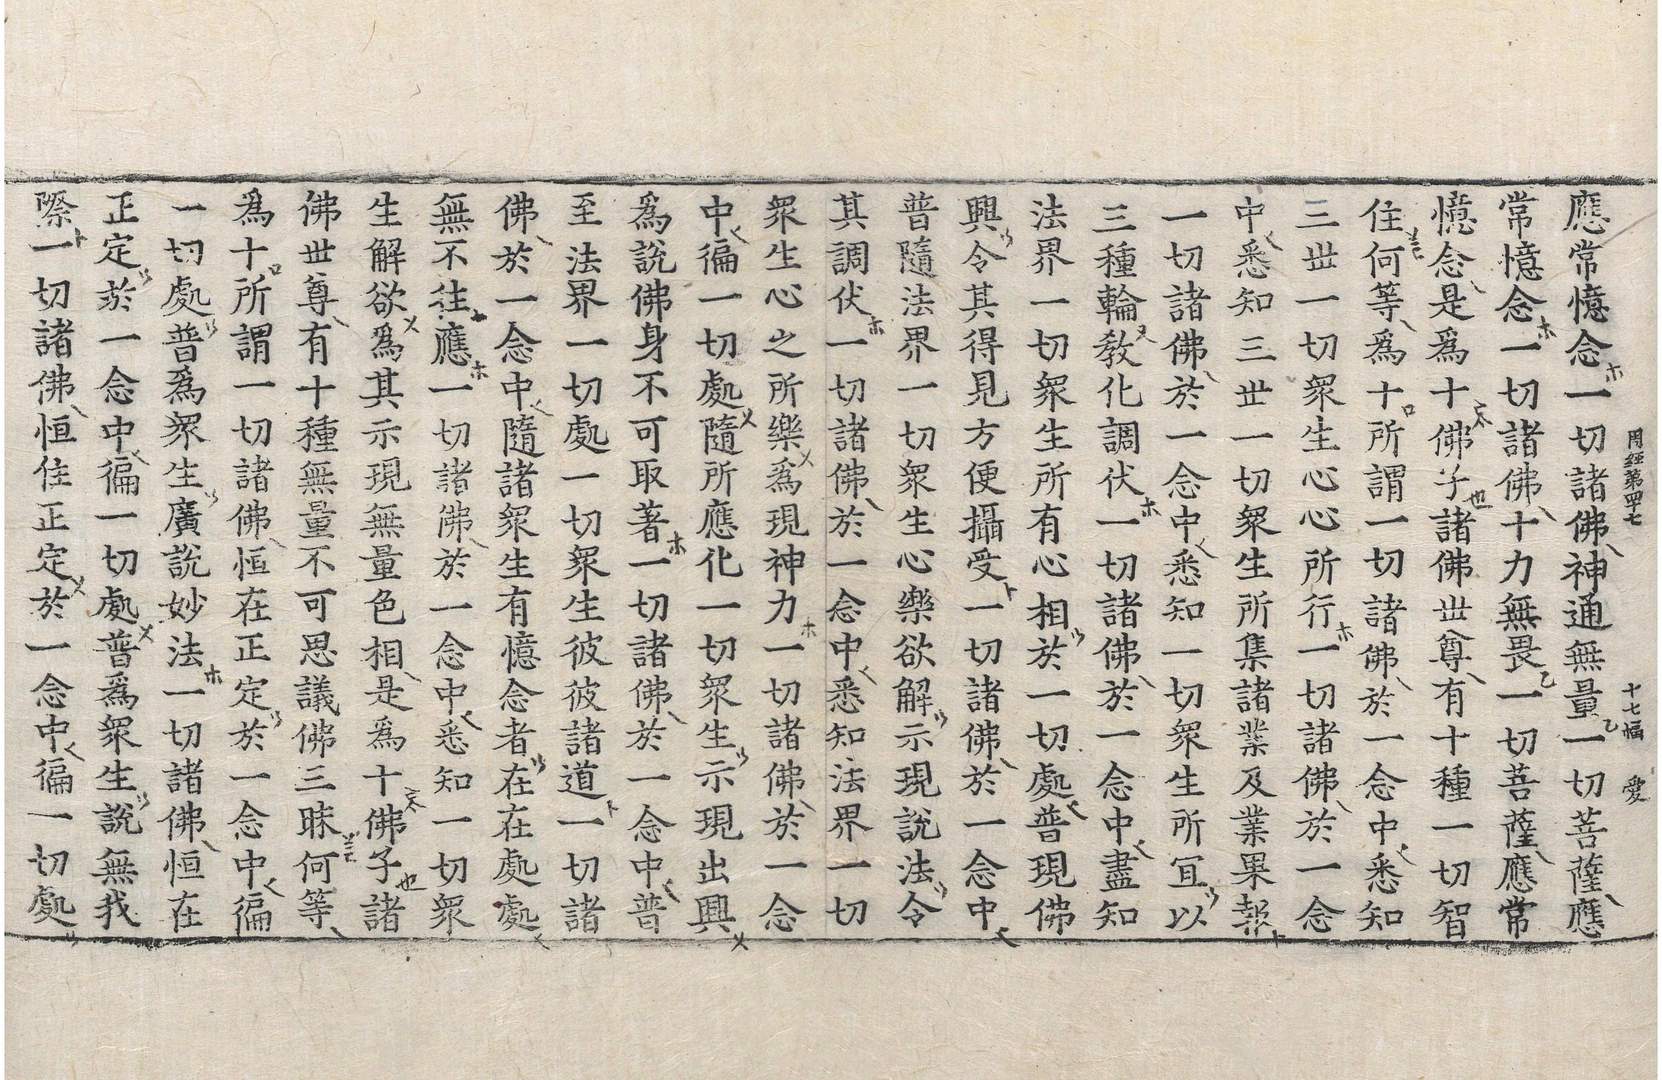 周経第四十七　十七幅　愛
應常憶念一切諸佛神通無量一切菩薩應
常憶念一切諸佛十力無畏一切菩薩應常
憶念是爲十佛子諸佛世尊有十種一切智
住何等爲十所謂一切諸佛於一念中悉知
三世一切衆生心心所行一切諸佛於一念
中悉知三世一切衆生所集諸業及業果報
一切諸佛於一念中悉知一切衆生所冝以
三種輪教化調伏一切諸佛於一念中盡知
法界一切衆生所有心相於一切處普現佛
興令其得見方便攝受一切諸佛於一念中
普隨法界一切衆生心樂欲解示現說法令
其調伏一切諸佛於一念中悉知法界一切
衆生心之所樂爲現神力一切諸佛於一念
中徧一切處隨所應化一切衆生示現出興
爲說佛身不可取著一切諸佛於一念中普
至法界一切處一切衆生彼彼諸道一切諸
佛於一念中隨諸衆生有憶念者在在處處
無不往應一切諸佛於一念中悉知一切衆
生解欲爲其示現無量色相是爲十佛子諸
佛世尊有十種無量不可思議佛三昧何等
爲十所謂一切諸佛恒在正定於一念中徧
一切處普爲衆生廣說妙法一切諸佛恒在
正定於一念中徧一切處普爲衆生說無我
際一切諸佛恒住正定於一念中徧一切處